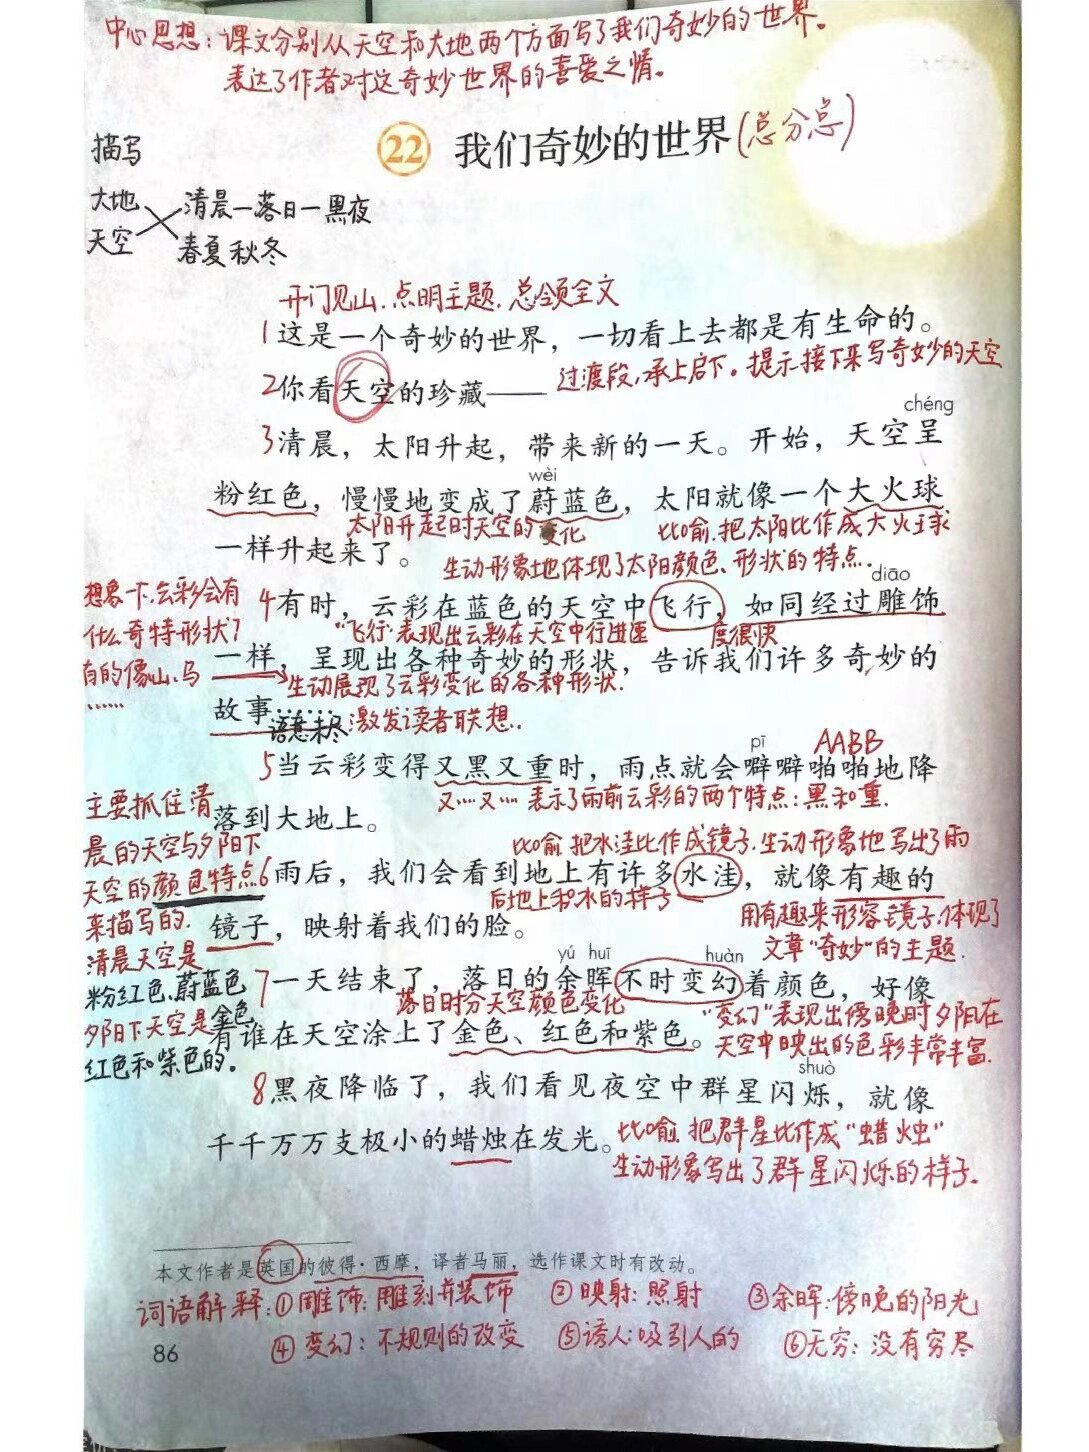 中心思想：课文分别从天空和大地两个方面写了我们奇妙的世界。
表达了作者对这奇妙世界的喜爱之情。
22 我们奇妙的世界(总分总)
描写
大地 清晨—落日—黑夜
天空 春夏秋冬
开门见山.点明主题.总领全文
1这是一个奇妙的世界，一切看上去都是有生命的。
2你看天空的珍藏——
过渡段,承上启下。提示接下来写奇妙的天空
chéng
3清晨，太阳升起，带来新的一天。开始，天空呈
wèi
粉红色，慢慢地变成了蔚蓝色，太阳就像一个大火球
太阳升起时天空的变化
比喻.把太阳比作成大火球
一样升起来了。
生动形象地体现了太阳颜色、形状的特点.
diāo
想象一下.云彩会有
什么奇特形状？
有的像山、马
……
4有时，云彩在蓝色的天空中飞行，如同经过雕饰
"飞行"表现出云彩在天空中行进速度很快
一样，呈现出各种奇妙的形状，告诉我们许多奇妙的
生动展现了云彩变化的各种形状.
故事……
语意未尽:激发读者联想..
pī
AABB
5当云彩变得又黑又重时，雨点就会噼噼啪啪地降
又…又… 表示了雨前云彩的两个特点：黑和重.
落到大地上。
主要抓住清
晨的天空与夕阳下
天空的颜色特点
来描写的.
清晨天空是
粉红色、蔚蓝色
夕阳下天空是金色
红色和紫色的。
比喻 把水洼比作成镜子.生动形象地写出了雨
6雨后，我们会看到地上有许多水洼，就像有趣的
后地上积水的样子
用有趣来形容镜子.体现了
镜子，映射着我们的脸。
文章"奇妙"的主题.
yú huī
huàn
7一天结束了，落日的余晖不时变幻着颜色，好像
落日时分天空颜色变化
"变幻"表现出傍晚时夕阳在
看谁在天空涂上了金色、红色和紫色。
天空中映出的色彩丰常丰富.
shuò
8黑夜降临了，我们看见夜空中群星闪烁，就像
千千万万支极小的蜡烛在发光。
比喻.把群星比作成"蜡烛"
生动形象写出了群星闪烁的样子.
本文作者是英国的彼得·西摩，译者马丽，选作课文时有改动。
词语解释:①雕饰:雕刻并装饰 ②映射:照射 ③余晖:傍晚的阳光
④变幻：不规则的改变 ⑤诱人:吸引人的 ⑥无穷：没有穷尽
86